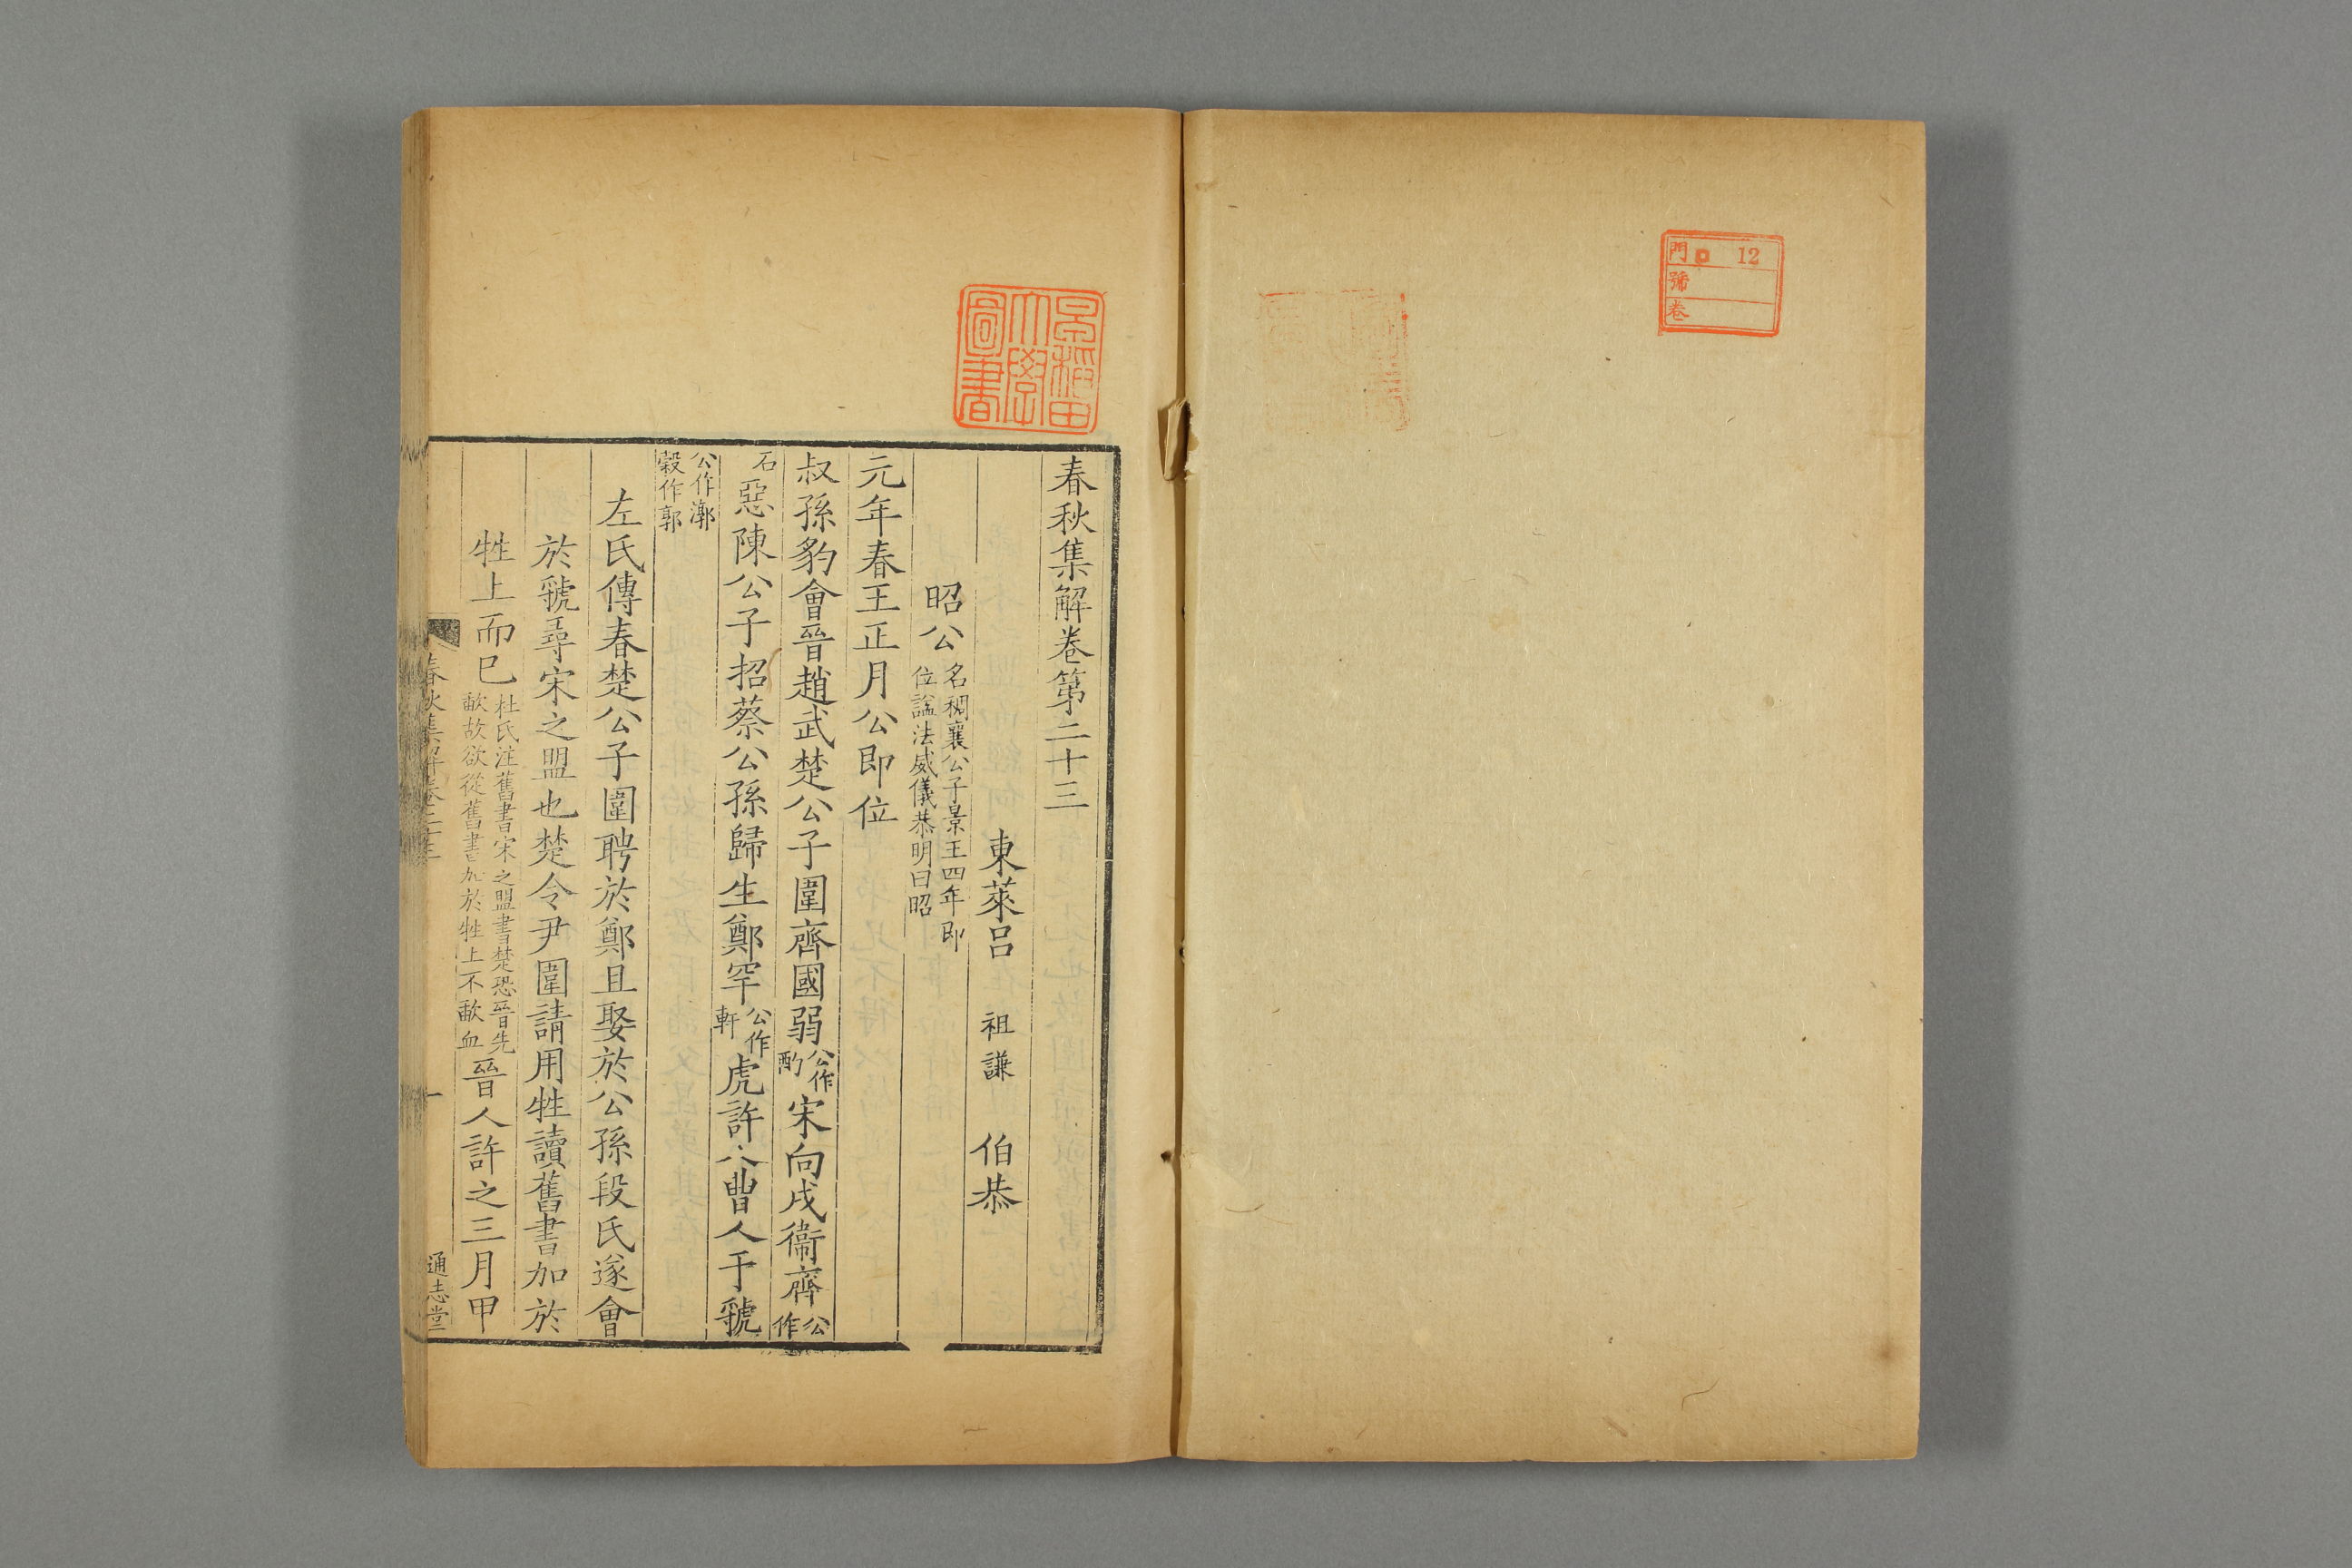 門 12
號
卷
早稲田
大學
圖書
春秋集解卷第二十三
東萊呂 祖謙 伯恭
昭公 名稠襄公子景王四年即
位諡法威儀恭明曰昭
元年春王正月公即位
叔孫豹會晉趙武楚公子圍齊國弱公作酌宋向戌衞齊公作
石惡陳公子招蔡公孫歸生鄭罕公作軒虎許人曹人于虢
公作漷
穀作郭
左氏傳春楚公子圍聘於鄭且娶於公孫段氏遂會
於虢尋宋之盟也楚令尹圍請用牲讀舊書加於
牲上而已杜氏注舊書宋之盟書楚恐晉先歃故欲從舊書加於牲上不歃血晉人許之三月甲
春秋集解卷二十三 一 通志堂